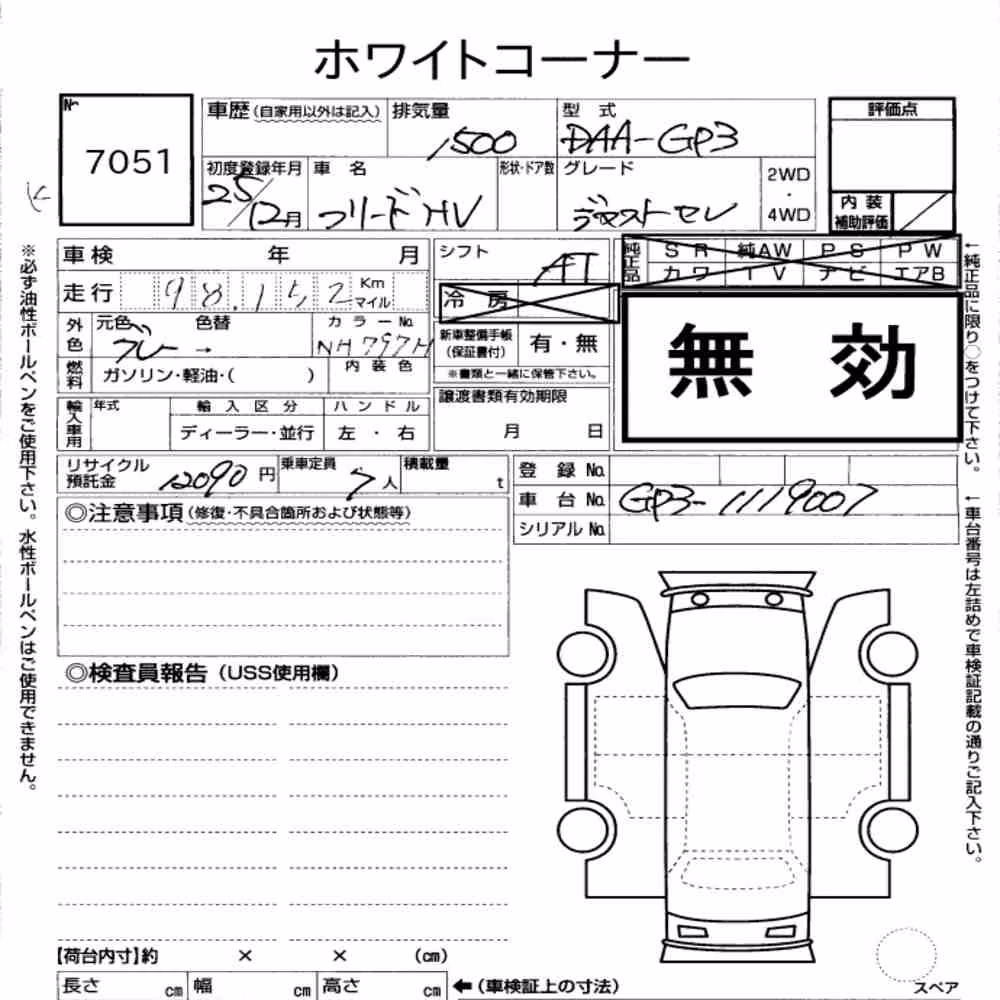 ホワイトコーナー
No. 7051
車歴(自家用以外は記入) 排気量 1500 型式 DAA-GP3
初度登録年月 25/12月 車名 フリードHV 形状・ドア数 グレード ジャストセレ 2WD・4WD
評価点
内装補助評価
車検 年 月
走行 98,152 Km マイル
シフト AT
冷房
純正品 SR 純AW PS PW
カワ TV ナビ エアB
無効
外色 元色 ブルー → 色替 カラーNo. NH797M
燃料 ガソリン・軽油・( ) 内装色
新車整備手帳(保証書付) 有・無
※書類と一緒に保管下さい。
譲渡書類有効期限 月 日
輸入車用 年式 輸入区分 ハンドル
ディーラー・並行 左・右
リサイクル預託金 12090円 乗車定員 7人 積載量 t
登録No.
車台No. GP3-1119007
シリアルNo.
◎注意事項(修復・不具合箇所および状態等)
◎検査員報告(USS使用欄)
【荷台内寸】約 × × (cm)
長さ cm 幅 cm 高さ cm ←(車検証上の寸法)
スペア
※必ず油性ボールペンをご使用下さい。水性ボールペンはご使用できません。
←純正品に限り○をつけて下さい。
←車台番号は左詰めで車検証記載の通りご記入下さい。